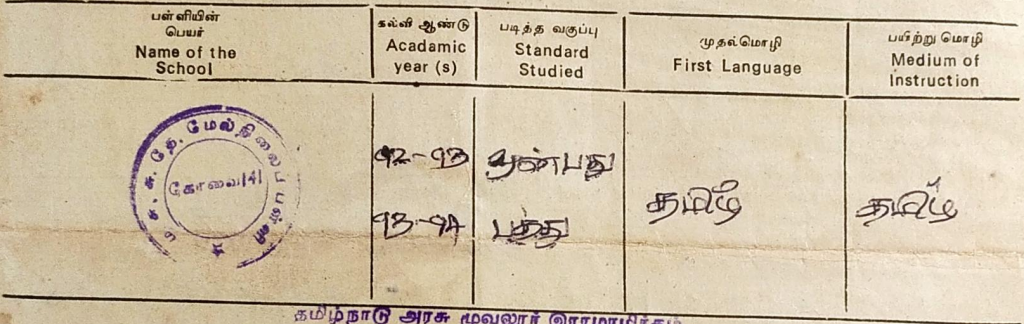 பள்ளியின்
பெயர்
Name of the
School
கல்வி ஆண்டு
Acadamic
year (s)
படித்த வகுப்பு
Standard
Studied
முதல்மொழி
First Language
பயிற்று மொழி
Medium of
Instruction
ம. சு. சு. தே. மேல்நிலைப் பள்ளி
கோவை
92-93 ஒன்பது
93-94 பத்து தமிழ் தமிழ்
தமிழ்நாடு அரசு மூவலூர் இராமாமிர்தம்